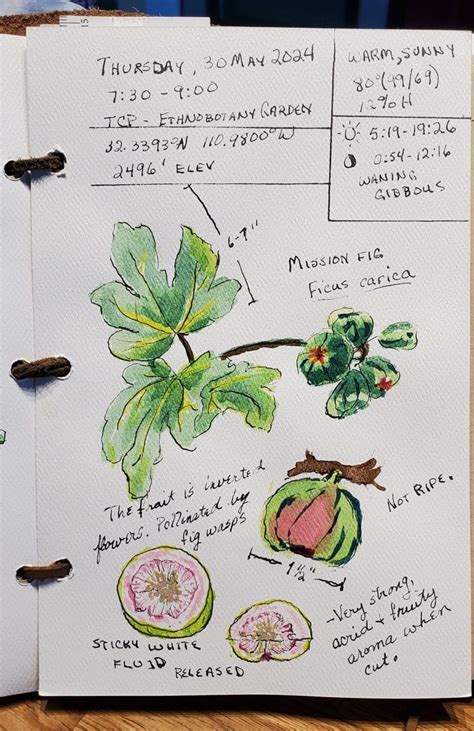 Thursday, 30 May 2024
7:30 - 9:00
TCP - Ethnobotany Garden
32.3393°N 110.9800°W
2496' Elev
Warm, Sunny
80° (99/69)
12% H
5:19 - 19:26
0:54 - 12:16
Waning
Gibbous
6-7"
Mission Fig
Ficus carica
The fruit is inverted
flowers. Pollinated by
fig wasps
Not Ripe.
1½"
Sticky white
fluid
released
-Very strong,
acrid & fruity
aroma when
cut.